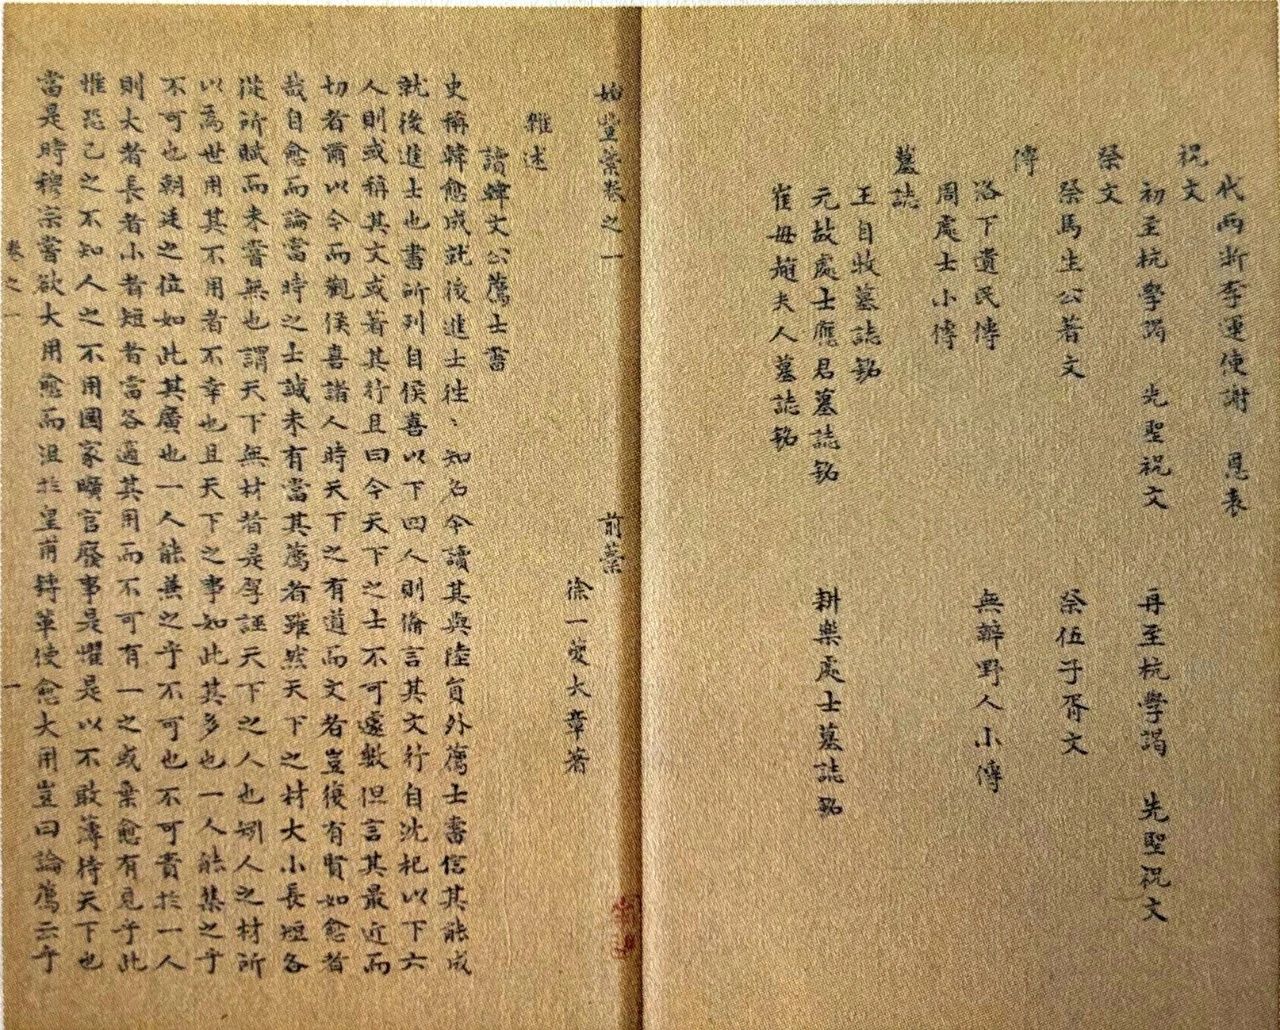 代兩浙李運使謝　恩表
祝文
初至杭學謁　先聖祝文　再至杭學謁　先聖祝文
祭文
祭馬生公著文　祭伍子胥文
傳
洛下遺民傳　無辯野人小傳
周處士小傳
墓誌
王自牧墓誌銘
元故處士應君墓誌銘　耕樂處士墓誌銘
崔母趙夫人墓誌銘
始豐藁卷之一　前藁
徐一夔大章著
雜述
讀韓文公薦士書
史稱韓愈成就後進士徃〻知名今讀其與陸員外薦士書信其能成
就後進士也書所列自侯喜以下四人則俻言其文行自沈杞以下六
人則或稱其文或著其行且曰今天下之士不可遽數但言其最近而
切者爾以今而觀侯喜諸人時天下之有道而文者豈復有賢如愈者
哉自愈而論當時之士誠未有當其薦者雖然天下之材大小長短各
從所賦而未嘗無也謂天下無材者是厚誣天下之人也矧人之材所
以為世用其不用者不幸也且天下之事如此其多也一人能集之乎
不可也朝廷之位如此其廣也一人能兼之乎不可也不可責於一人
則大者長者小者短者當各適其用而不可有一之或棄愈有見乎此
惟恐己之不知人之不用國家曠官廢事是懼是以不敢薄待天下也
當是時穆宗嘗欲大用愈而沮於皇甫鎛軰使愈大用豈曰論薦云乎
卷之一　一